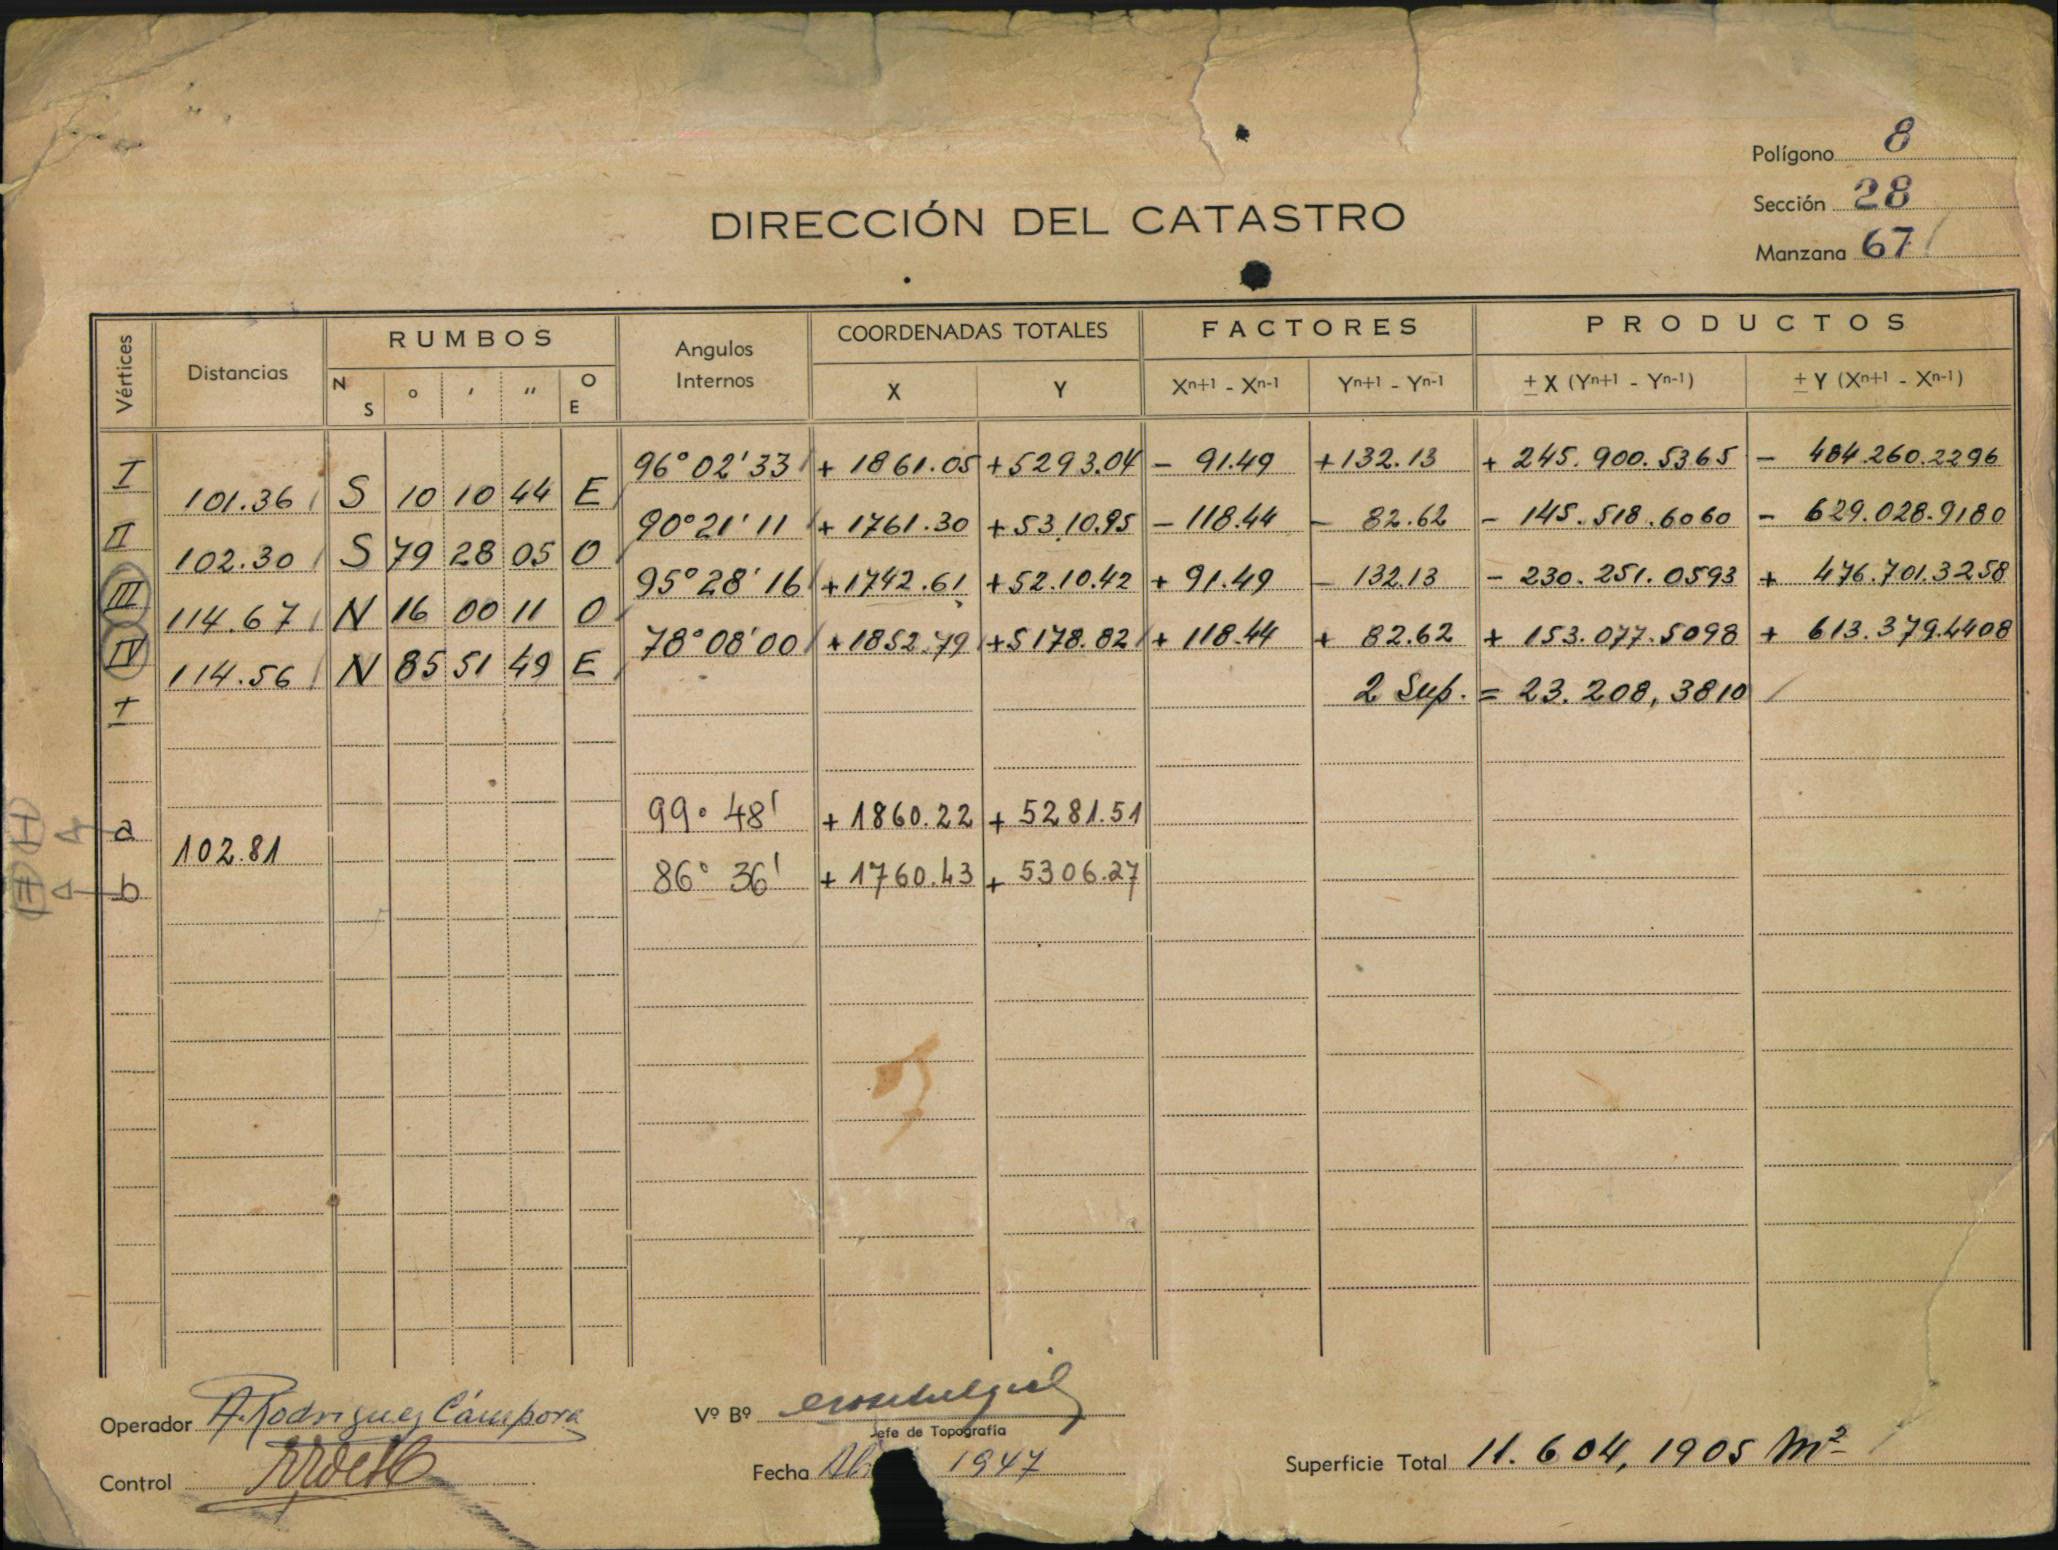 Polígono 8
Sección 28
Manzana 67
DIRECCIÓN DEL CATASTRO
Vértices Distancias RUMBOS Angulos Internos COORDENADAS TOTALES FACTORES PRODUCTOS
N S ° ' " O E X Y Xn+1 - Xn-1 Yn+1 - Yn-1 ± X (Yn+1 - Yn-1) ± Y (Xn+1 - Xn-1)
I 96° 02' 33 + 1861.05 +5293.04 - 91.49 +132.13 + 245.900.5365 - 484.260.2296
101.36 S 10 10 44 E
II 90° 21' 11 + 1761.30 +5310.95 - 118.44 - 82.62 - 145.518.6060 - 629.028.9180
102.30 S 79 28 05 O
III 95° 28' 16 +1742.61 +52.10.42 + 91.49 - 132.13 - 230.251.0593 + 476.701.3258
114.67 N 16 00 11 O
IV 78° 08' 00 +1852.79 +5178.82 + 118.44 + 82.62 + 153.077.5098 + 613.379.4408
114.56 N 85 51 49 E
I 2 Sup. = 23.208,3810
a 99° 48' + 1860.22 + 5281.51
102.81
b 86° 36' + 1760.43 + 5306.27
Operador A. Rodriguez Cámpora
Vº Bº
Jefe de Topografía
Control
Fecha 1947
Superficie Total 11.604,1905 m²